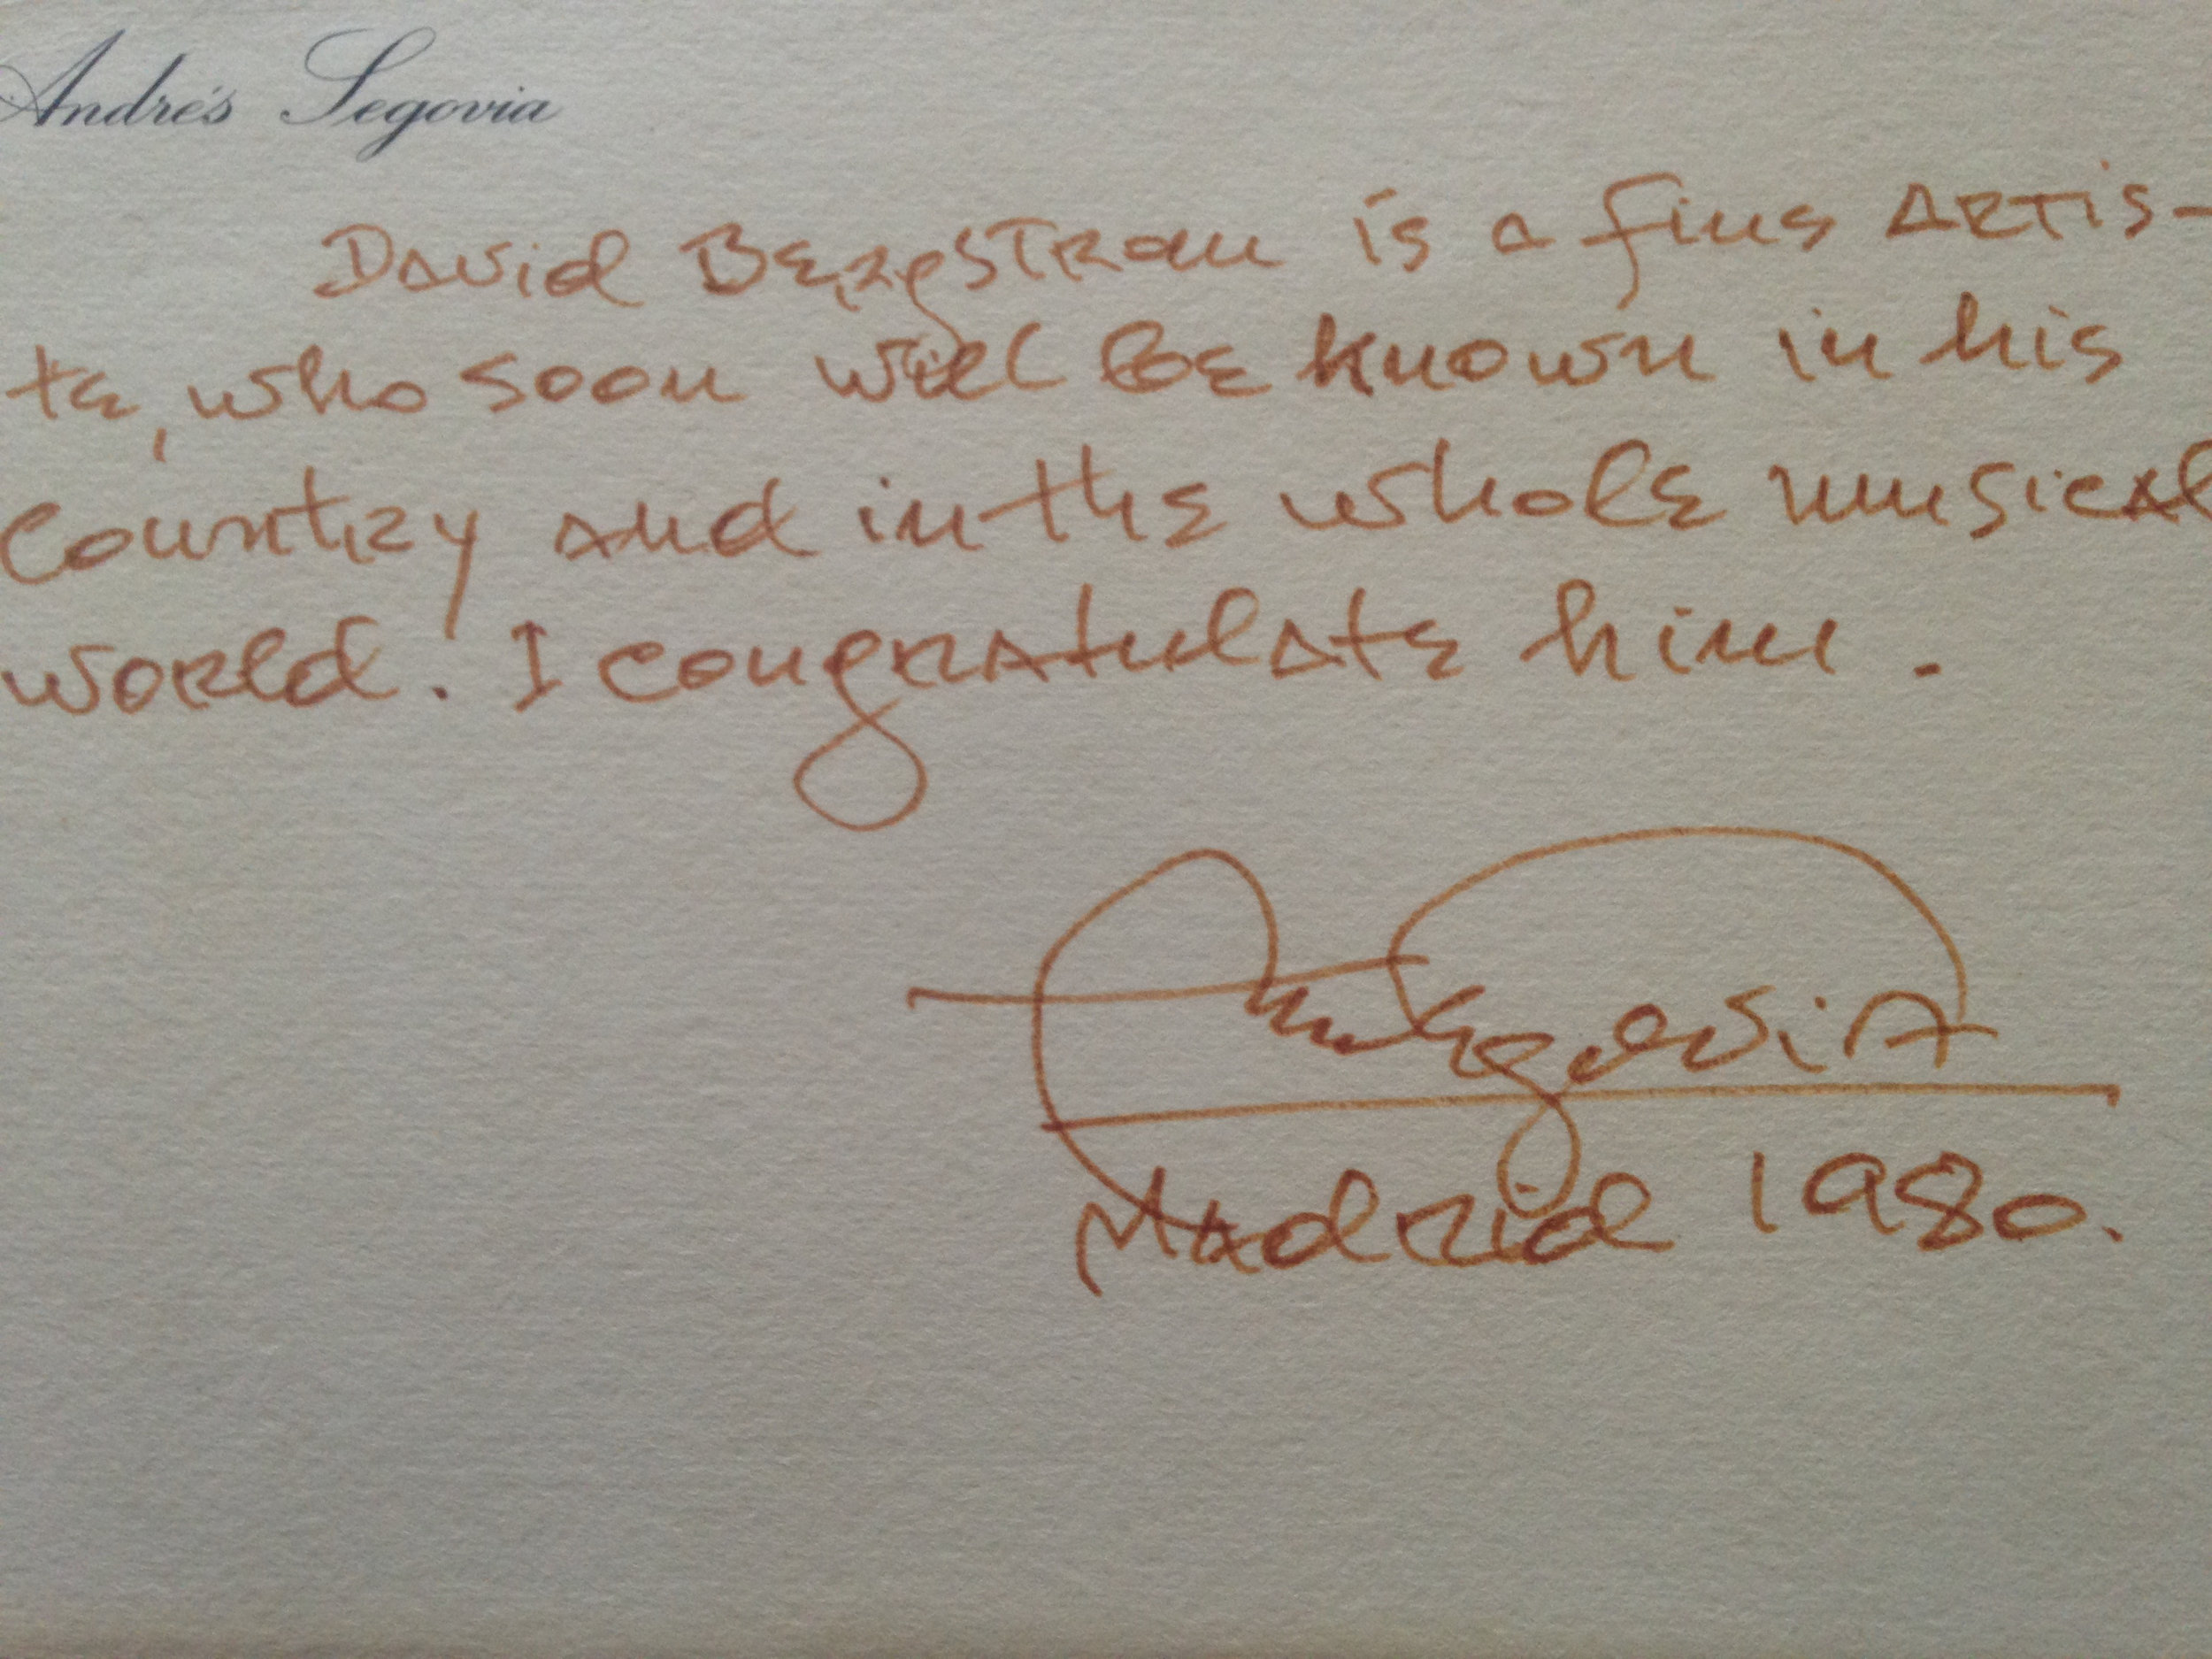 Andrés Segovia
David Bergstrom is a fine artis-
te, who soon will be known in his
country and in the whole musical
world. I congratulate him.
Andrés Segovia
Madrid 1980.